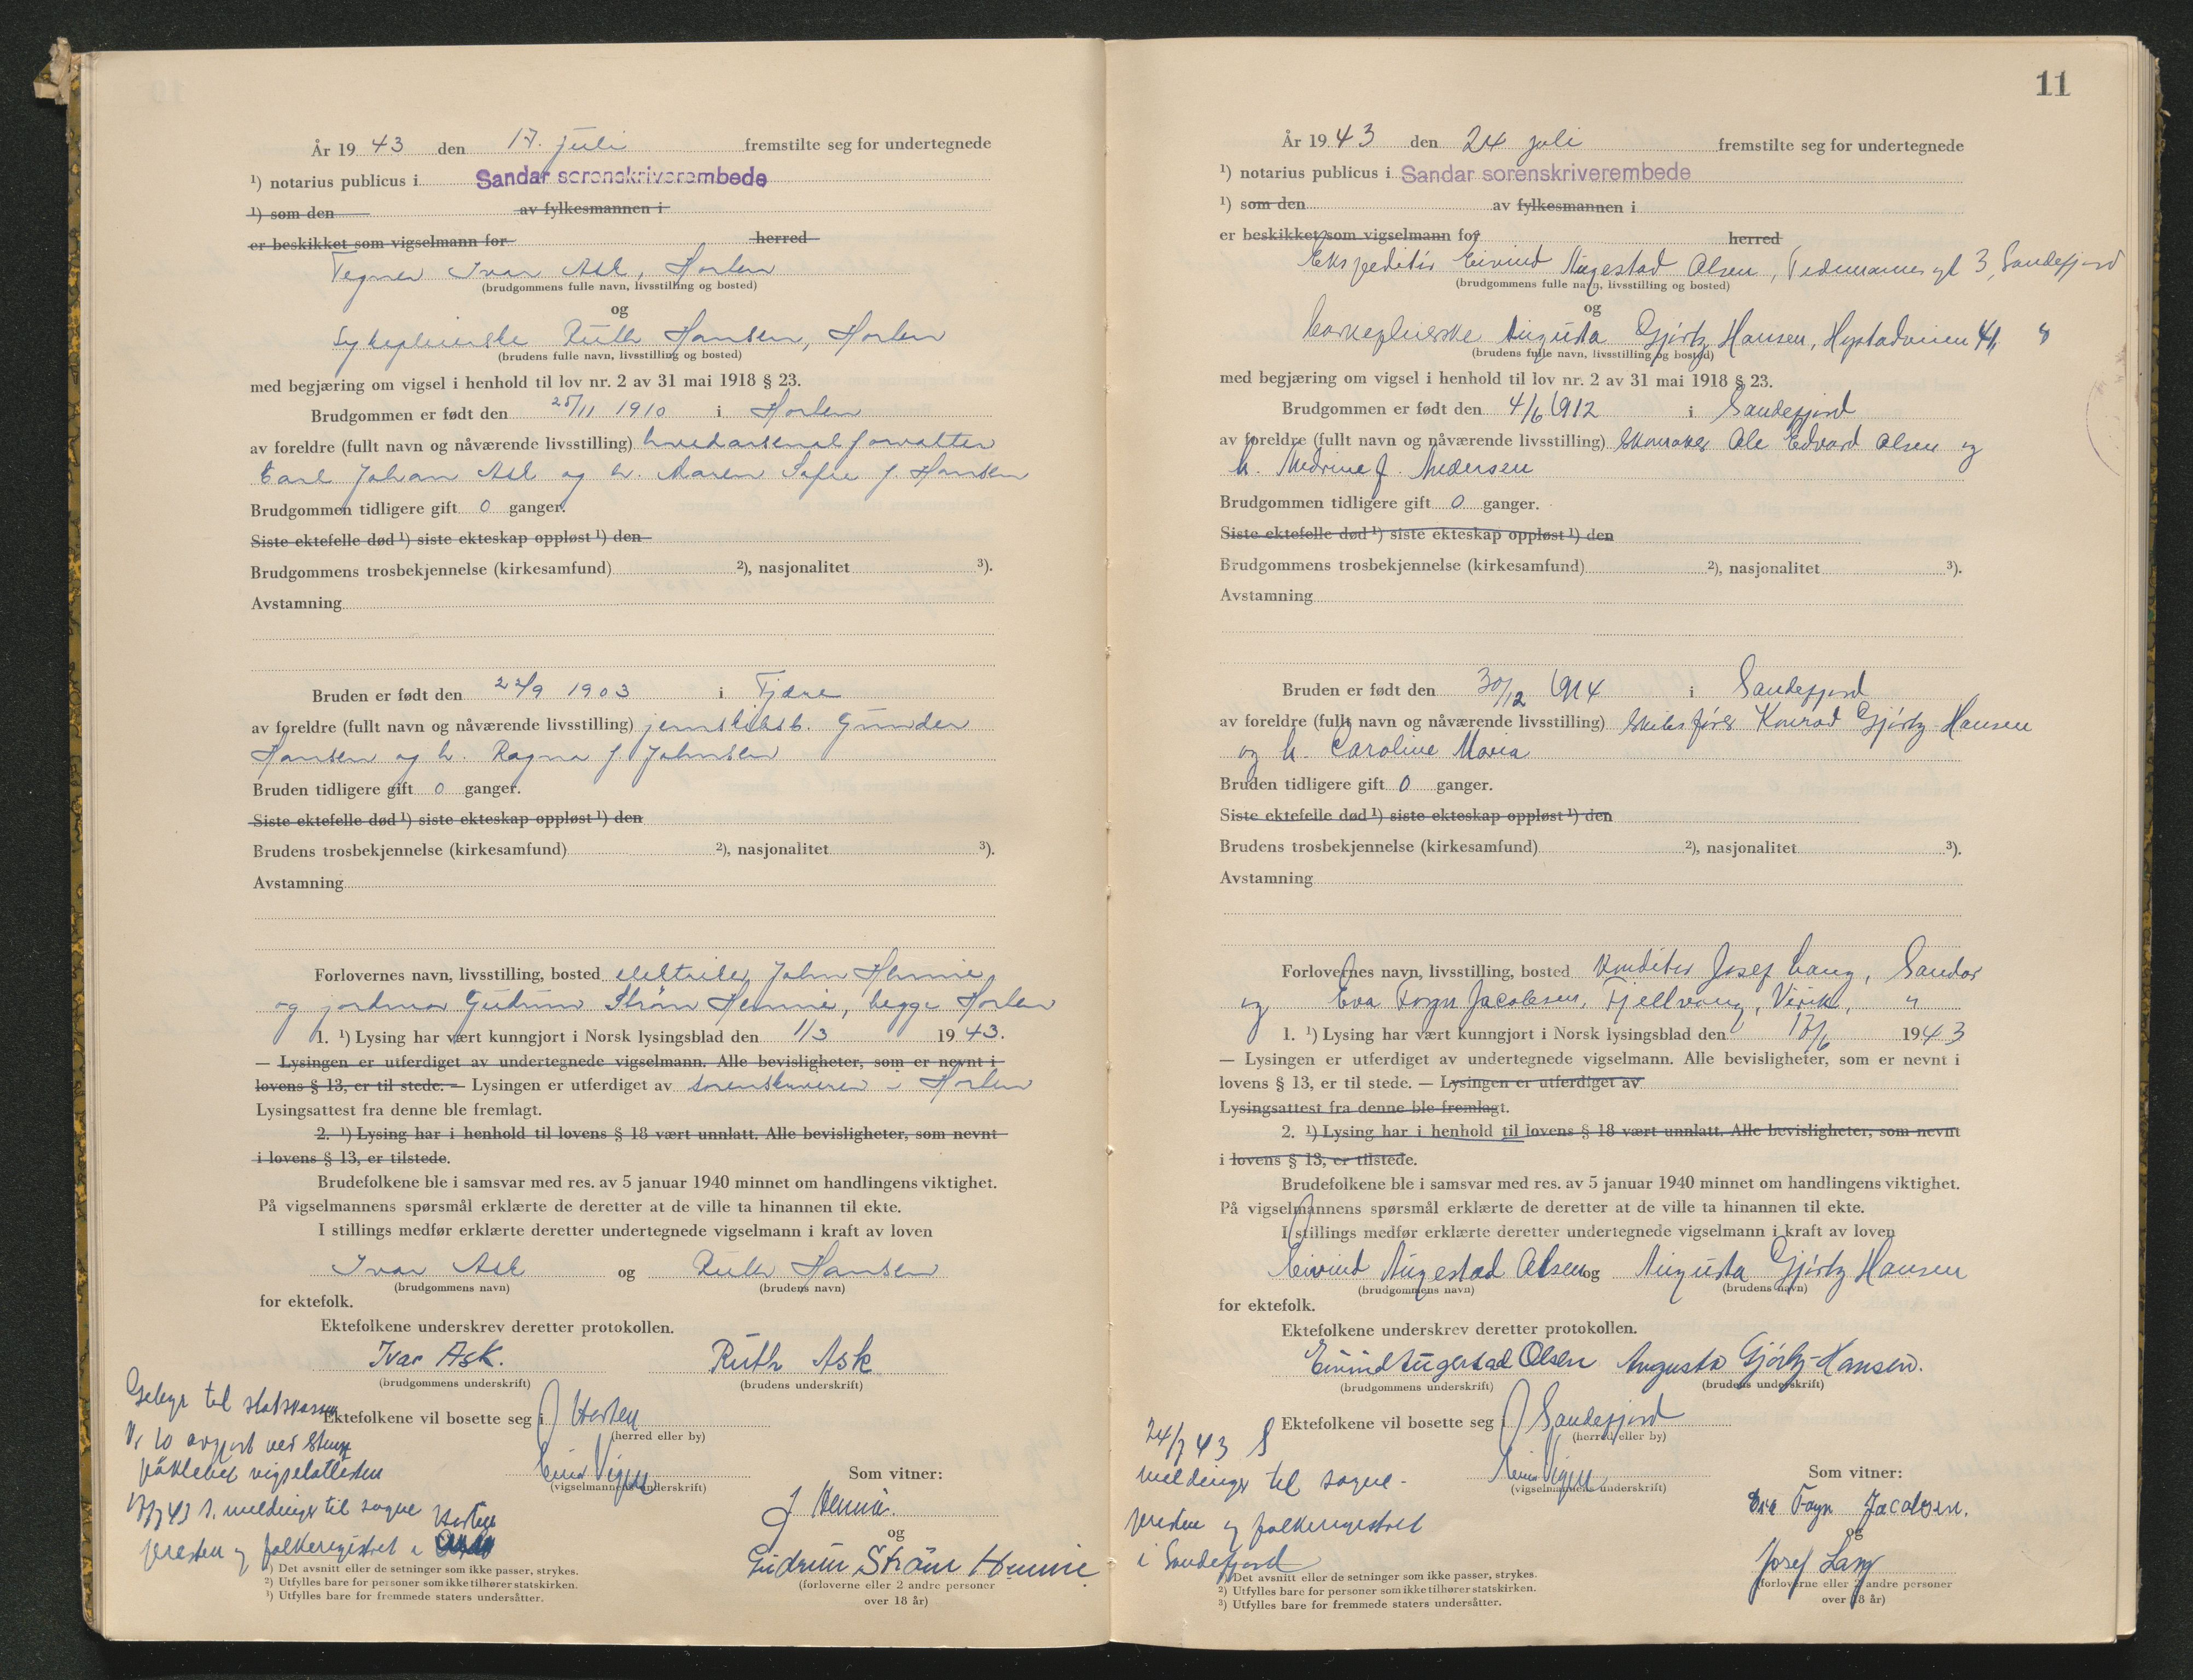 År 19 43 den 17. juli fremstilte seg for undertegnede
¹) notarius publicus i Sandar sorenskriverembede
¹) som den av fylkesmannen i
er beskikket som vigselmann for herred
Tegner Ivar Ask, Horten
(brudgommens fulle navn, livsstilling og bosted)
og
Sykepleierske Ruth Hansen, Horten
(brudens fulle navn, livsstilling og bosted)
med begjæring om vigsel i henhold til lov nr. 2 av 31 mai 1918 § 23.
Brudgommen er født den 25/11 1910 i Horten
av foreldre (fullt navn og nåværende livsstilling) hovedarsenal forvalter
Carl Johan Ask og h. Maren Sofie f. Hansen
Brudgommen tidligere gift 0 ganger.
Siste ektefelle død ¹) siste ekteskap oppløst ¹) den
Brudgommens trosbekjennelse (kirkesamfund) ²), nasjonalitet ³).
Avstamning
Bruden er født den 22/9 1903 i Tjøme
av foreldre (fullt navn og nåværende livsstilling) jernskibsb. Gunder
Hansen og h. Ragna f. Johnsen
Bruden tidligere gift 0 ganger.
Siste ektefelle død ¹) siste ekteskap oppløst ¹) den
Brudens trosbekjennelse (kirkesamfund) ²), nasjonalitet ³).
Avstamning
Forlovernes navn, livsstilling, bosted elektriker John Hennie
og jordmor Gudrun Strøm Hennie, begge Horten
1. ¹) Lysing har vært kunngjort i Norsk lysingsblad den 1/3 1943.
— Lysingen er utferdiget av undertegnede vigselmann. Alle bevisligheter, som er nevnt i
lovens § 13, er til stede. — Lysingen er utferdiget av sorenskriveren i Horten
Lysingsattest fra denne ble fremlagt.
2. ¹) Lysing har i henhold til lovens § 18 vært unnlatt. Alle bevisligheter, som nevnt
i lovens § 13, er tilstede.
Brudefolkene ble i samsvar med res. av 5 januar 1940 minnet om handlingens viktighet.
På vigselmannens spørsmål erklærte de deretter at de ville ta hinannen til ekte.
I stillings medfør erklærte deretter undertegnede vigselmann i kraft av loven
Ivar Ask og Ruth Hansen
(brudgommens navn) (brudens navn)
for ektefolk.
Ektefolkene underskrev deretter protokollen.
Ivar Ask. Ruth Ask
(brudgommens underskrift) (brudens underskrift)
Gebyr til statskassen
Ektefolkene vil bosette seg i Horten
(herred eller by)
kr 10 avgjort ved stemp
påklebet vigselattesten
(vigselmannens underskrift)
Som vitner:
17/7 43 S. meldinger til sogne
J Hennie.
og
presten og folkeregistret i Horten
Gudrun Strøm Hennie
(forloverne eller 2 andre personer
over 18 år)
¹) Det avsnitt eller de setninger som ikke passer, strykes.
²) Utfylles bare for personer som ikke tilhører statskirken.
³) Utfylles bare for fremmede staters undersåtter.
11
År 19 43 den 24 juli fremstilte seg for undertegnede
¹) notarius publicus i Sandar sorenskriverembede
¹) som den av fylkesmannen i
er beskikket som vigselmann for herred
Ekspeditør Eivind Augestad Olsen, 3, Sandefjord
(brudgommens fulle navn, livsstilling og bosted)
og
barnepleierske Augusta Gjörtz Hansen, Hystadveien 41, "
(brudens fulle navn, livsstilling og bosted)
med begjæring om vigsel i henhold til lov nr. 2 av 31 mai 1918 § 23.
Brudgommen er født den 4/6 1912 i Sandefjord
av foreldre (fullt navn og nåværende livsstilling) skomaker Ole Edvard Olsen og
h. Andrine f. Andersen
Brudgommen tidligere gift 0 ganger.
Siste ektefelle død ¹) siste ekteskap oppløst ¹) den
Brudgommens trosbekjennelse (kirkesamfund) ²), nasjonalitet ³).
Avstamning
Bruden er født den 30/12 1914 i Sandefjord
av foreldre (fullt navn og nåværende livsstilling) skibsfører Konrad Gjörtz-Hansen
og h. Caroline Maria
Bruden tidligere gift 0 ganger.
Siste ektefelle død ¹) siste ekteskap oppløst ¹) den
Brudens trosbekjennelse (kirkesamfund) ²), nasjonalitet ³).
Avstamning
Forlovernes navn, livsstilling, bosted Konditor Josef Lang, Sandar
og Eva Fogn Jacobsen, Fjellvang, Virik, "
1. ¹) Lysing har vært kunngjort i Norsk lysingsblad den 17/6 1943
— Lysingen er utferdiget av undertegnede vigselmann. Alle bevisligheter, som er nevnt i
lovens § 13, er til stede. — Lysingen er utferdiget av
Lysingsattest fra denne ble fremlagt.
2. ¹) Lysing har i henhold til lovens § 18 vært unnlatt. Alle bevisligheter, som nevnt
i lovens § 13, er tilstede.
Brudefolkene ble i samsvar med res. av 5 januar 1940 minnet om handlingens viktighet.
På vigselmannens spørsmål erklærte de deretter at de ville ta hinannen til ekte.
I stillings medfør erklærte deretter undertegnede vigselmann i kraft av loven
Eivind Augestad Olsen og Augusta Gjörtz Hansen
(brudgommens navn) (brudens navn)
for ektefolk.
Ektefolkene underskrev deretter protokollen.
Eivind Augestad Olsen Augusta Gjörtz-Hansen.
(brudgommens underskrift) (brudens underskrift)
Ektefolkene vil bosette seg i Sandefjord
(herred eller by)
24/7 43 S
meldinger til sogne-
(vigselmannens underskrift)
Som vitner:
Eva Fogn Jacobsen.
presten og folkeregistret
og
i Sandefjord
Josef Lang
(forloverne eller 2 andre personer
over 18 år)
¹) Det avsnitt eller de setninger som ikke passer, strykes.
²) Utfylles bare for personer som ikke tilhører statskirken.
³) Utfylles bare for fremmede staters undersåtter.